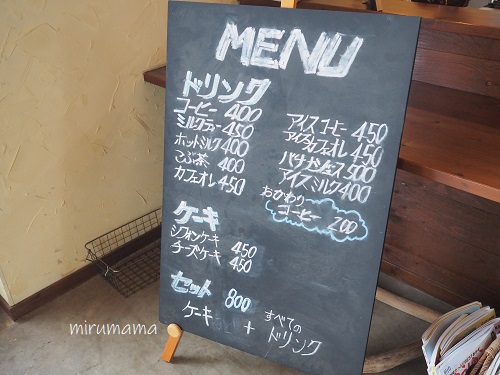 MENU
ドリンク
コーヒー 400
ミルクティー 450
ホットミルク 400
こぶ茶 400
カフェオレ 450
アイスコーヒー 450
アイスカフェオレ 450
バナナジュース 500
アイスミルク 400
おかわり
コーヒー 200
ケーキ
シフォンケーキ 450
チーズケーキ 450
セット 800
ケーキ + すべての
ドリンク
mirumama